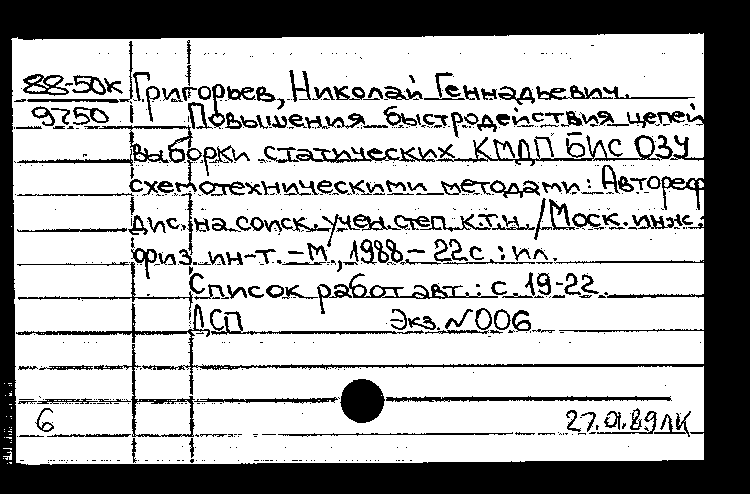 88-50к Григорьев, Николай Геннадьевич.
9750 Повышения быстродействия цепей
выборки статических КМДП БИС ОЗУ
схемотехническими методами: Автореф
дис. на соиск. учен. степ. к.т.н. /Моск. инж.-
физ ин-т. - М, 1988. - 22 с. : ил.
Список работ авт.: с. 19-22.
ДСП Экз. №006
6 27.01.89 ЛК